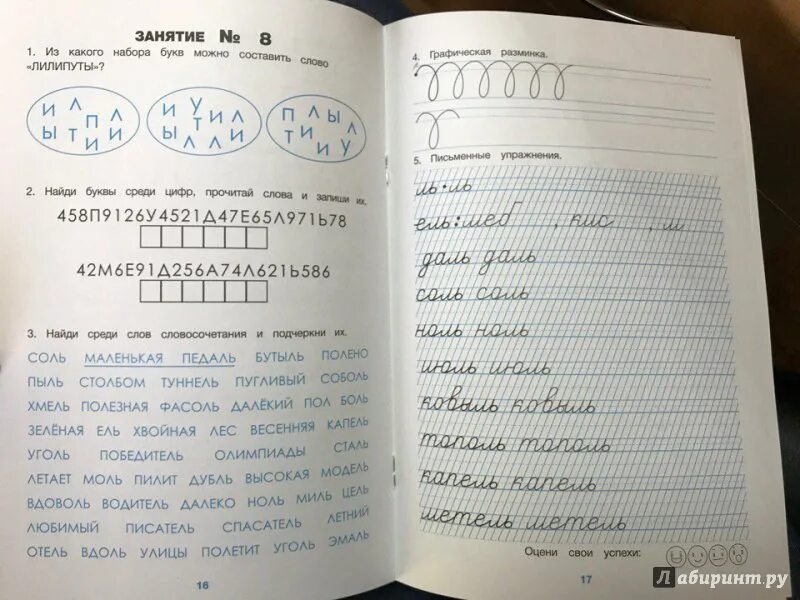 ЗАНЯТИЕ № 8
1. Из какого набора букв можно составить слово
«ЛИЛИПУТЫ»?
И Л П Л Ы Т И И
И У Т И Л Ы Л Л И
П Л Ы Л Т И И У
2. Найди буквы среди цифр, прочитай слова и запиши их.
458П9126У4521Д47Е65Л971Ь78
42М6Е91Д256А74Л621Ь586
3. Найди среди слов словосочетания и подчеркни их.
СОЛЬ МАЛЕНЬКАЯ ПЕДАЛЬ БУТЫЛЬ ПОЛЕНО
ПЫЛЬ СТОЛБОМ ТУННЕЛЬ ПУГЛИВЫЙ СОБОЛЬ
ХМЕЛЬ ПОЛЕЗНАЯ ФАСОЛЬ ДАЛЁКИЙ ПОЛ БОЛЬ
ЗЕЛЁНАЯ ЕЛЬ ХВОЙНАЯ ЛЕС ВЕСЕННЯЯ КАПЕЛЬ
УГОЛЬ ПОБЕДИТЕЛЬ ОЛИМПИАДЫ СТАЛЬ
ЛЕТАЕТ МОЛЬ ПИЛИТ ДУБЛЬ ВЫСОКАЯ МОДЕЛЬ
ВДОВОЛЬ ВОДИТЕЛЬ ДАЛЕКО НОЛЬ МИЛЬ ЦЕЛЬ
ЛЮБИМЫЙ ПИСАТЕЛЬ СПАСАТЕЛЬ ЛЕТНИЙ
ОТЕЛЬ ВДОЛЬ УЛИЦЫ ПОЛЕТИТ УГОЛЬ ЭМАЛЬ
16
4. Графическая разминка.
5. Письменные упражнения.
ль·ль
ель: меб , кис , м
даль даль
соль соль
ноль ноль
июль июль
ковыль ковыль
тополь тополь
капель капель
метель метель
Оцени свои успехи:
17
Лабиринт.ру